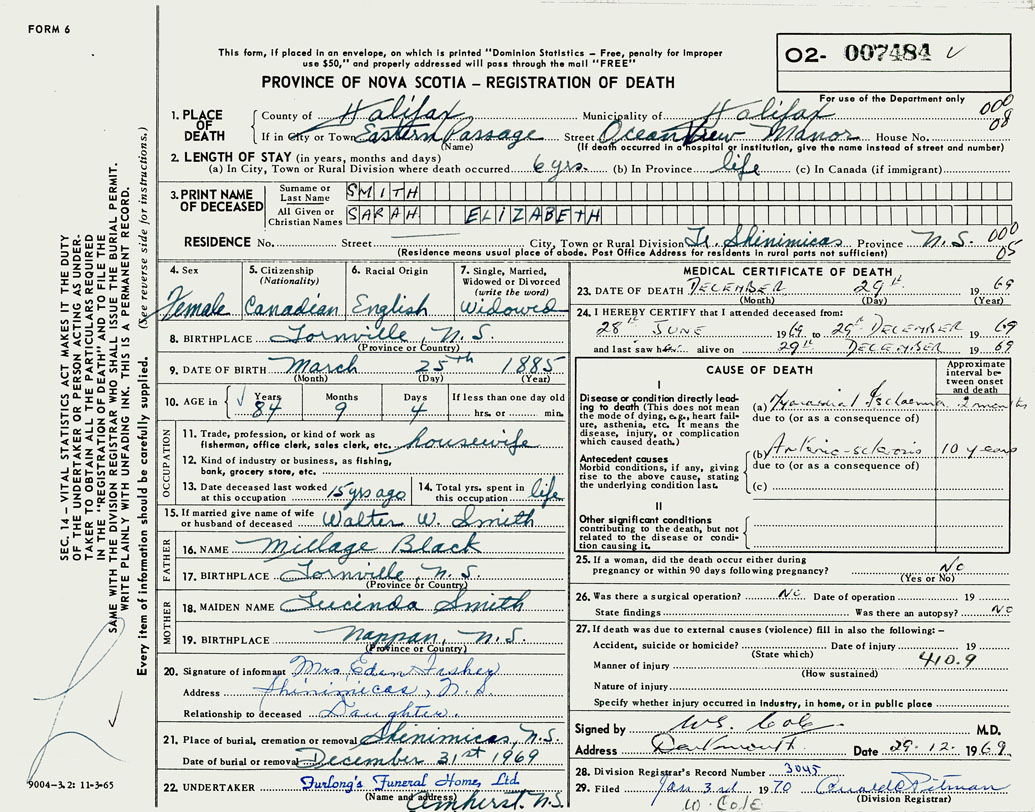 FORM 6
This form, if placed in an envelope, on which is printed "Dominion Statistics – Free, penalty for improper
use $50," and properly addressed will pass through the mail "FREE"
PROVINCE OF NOVA SCOTIA – REGISTRATION OF DEATH
O2- 007484
For use of the Department only
000
08
1. PLACE OF DEATH
County of Halifax Municipality of Halifax
If in City or Town Eastern Passage Street Ocean View Manor House No.
(Name) (If death occurred in a hospital or institution, give the name instead of street and number)
2. LENGTH OF STAY (in years, months and days)
(a) In City, Town or Rural Division where death occurred 6 yrs. (b) In Province life (c) In Canada (if immigrant)
3. PRINT NAME OF DECEASED
Surname or Last Name SMITH
All Given or Christian Names SARAH ELIZABETH
RESIDENCE No. Street City, Town or Rural Division Tr. Shinimicas Province N.S. 000
05
(Residence means usual place of abode. Post Office Address for residents in rural parts not sufficient)
4. Sex Female
5. Citizenship (Nationality) Canadian
6. Racial Origin English
7. Single, Married, Widowed or Divorced (write the word) Widowed
8. BIRTHPLACE Lornville, N.S.
(Province or Country)
9. DATE OF BIRTH March 25th 1885
(Month) (Day) (Year)
10. AGE in Years 84 Months 9 Days 4 If less than one day old
hrs. or min.
OCCUPATION
11. Trade, profession, or kind of work as
fisherman, office clerk, sales clerk, etc. housewife
12. Kind of industry or business, as fishing,
bank, grocery store, etc.
13. Date deceased last worked at this occupation 15 yrs ago
14. Total yrs. spent in this occupation life
15. If married give name of wife
or husband of deceased Walter W. Smith
FATHER
16. NAME Millage Black
17. BIRTHPLACE Lornville, N.S.
(Province or Country)
MOTHER
18. MAIDEN NAME Lucinda Smith
19. BIRTHPLACE Nappan, N.S.
(Province or Country)
20. Signature of informant Mrs. Fisher
Address Shinimicas, N.S.
Relationship to deceased Daughter
21. Place of burial, cremation or removal Shinimicas, N.S.
Date of burial or removal December 31st 1969
22. UNDERTAKER Furlong's Funeral Home, Ltd
(Name and address) Amherst. N.S.
MEDICAL CERTIFICATE OF DEATH
23. DATE OF DEATH DECEMBER 29th 1969
(Month) (Day) (Year)
24. I HEREBY CERTIFY that I attended deceased from:
28th JUNE 1969 to 29th DECEMBER 1969
and last saw her alive on 29th DECEMBER 1969
CAUSE OF DEATH
Approximate interval between onset and death
I
Disease or condition directly leading to death (This does not
mean the mode of dying, e.g., heart failure, asthenia, etc. It means the
disease, injury, or complication
which caused death.)
(a) Myocardial Ischaemia 2 months
due to (or as a consequence of)
Antecedent causes
Morbid conditions, if any, giving
rise to the above cause, stating
the underlying condition last.
(b) Arterio-sclerosis 10 years
due to (or as a consequence of)
(c)
II
Other significant conditions
contributing to the death, but not
related to the disease or condition causing it.
25. If a woman, did the death occur either during
pregnancy or within 90 days following pregnancy? No
(Yes or No)
26. Was there a surgical operation? No Date of operation 19
State findings Was there an autopsy? No
27. If death was due to external causes (violence) fill in also the following: –
Accident, suicide or homicide? Date of injury 19
(State which)
410.9
Manner of injury
(How sustained)
Nature of injury
Specify whether injury occurred in Industry, in home, or in public place
Signed by W.S. Cole M.D.
Address Dartmouth Date 29.12.1969
28. Division Registrar's Record Number 3045
29. Filed Jan 3rd 1970 Pitman
(Division Registrar)
W. Cole
SEC. 14 – VITAL STATISTICS ACT MAKES IT THE DUTY
OF THE UNDERTAKER OR PERSON ACTING AS UNDER-
TAKER TO OBTAIN ALL THE PARTICULARS REQUIRED
IN THE "REGISTRATION OF DEATH" AND TO FILE THE
SAME WITH THE DIVISION REGISTRAR WHO SHALL ISSUE THE BURIAL PERMIT.
WRITE PLAINLY WITH UNFADING INK. THIS IS A PERMANENT RECORD.
Every item of information should be carefully supplied. (See reverse side for instructions.)
9004-3.2: 11-3-65